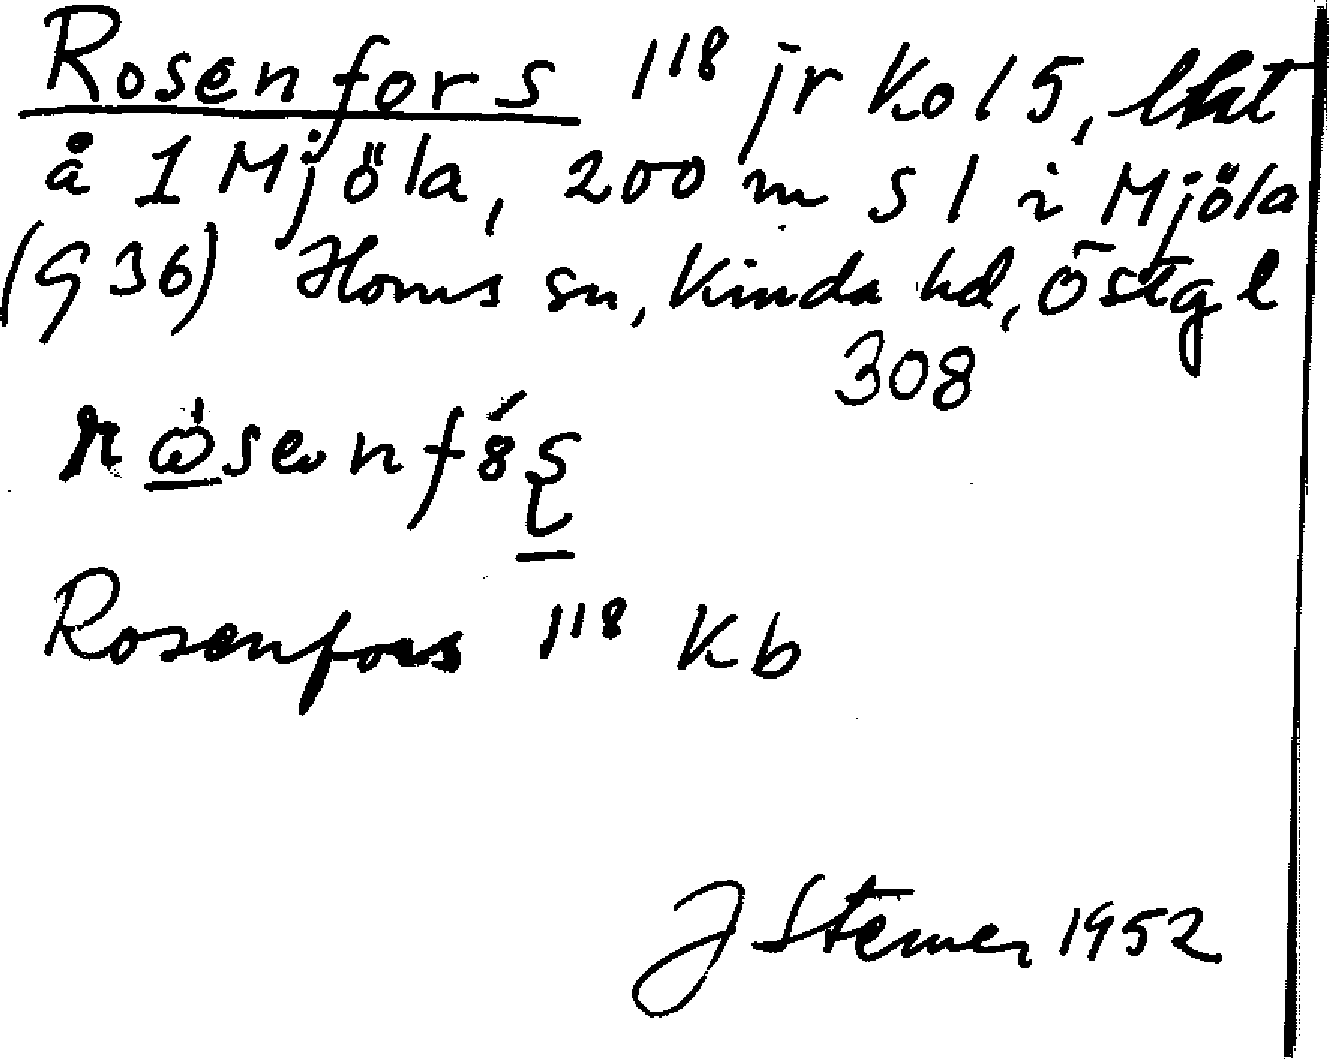 Rosenfors 118 jr Ko 15, lht
å 1 Mjöla, 200 m S 1 i Mjöla
(936) Horns sn, Kinda hd, Östgl
308
Rosenfors 118 Kb
J Sterner 1952